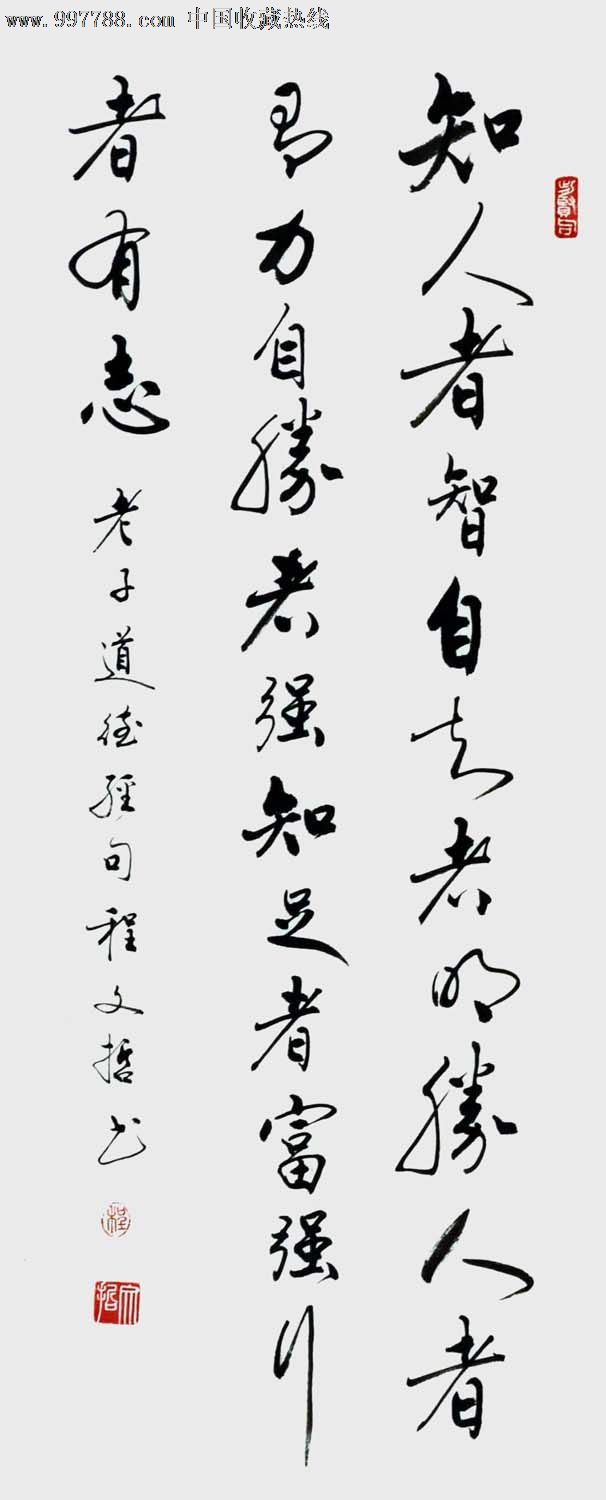 www.997788.com 中国收藏热线
知人者智自知者明勝人者
有力自勝者强知足者富强行
者有志
老子道德經句程文哲书
程
文哲